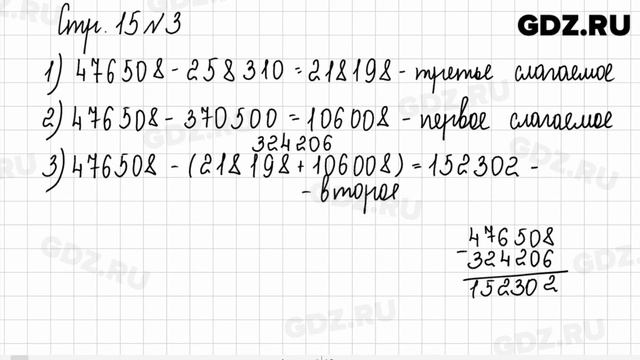 Стр. 15 №3
GDZ.RU
1) 476508 - 258310 = 218198 - третье слагаемое
2) 476508 - 370500 = 106008 - первое слагаемое
324206
3) 476508 - (218198 + 106008) = 152302 -
- второе
476508
- 324206
152302
GDZ.RU
GDZ.RU
GDZ.RU
GDZ.RU
GDZ.RU